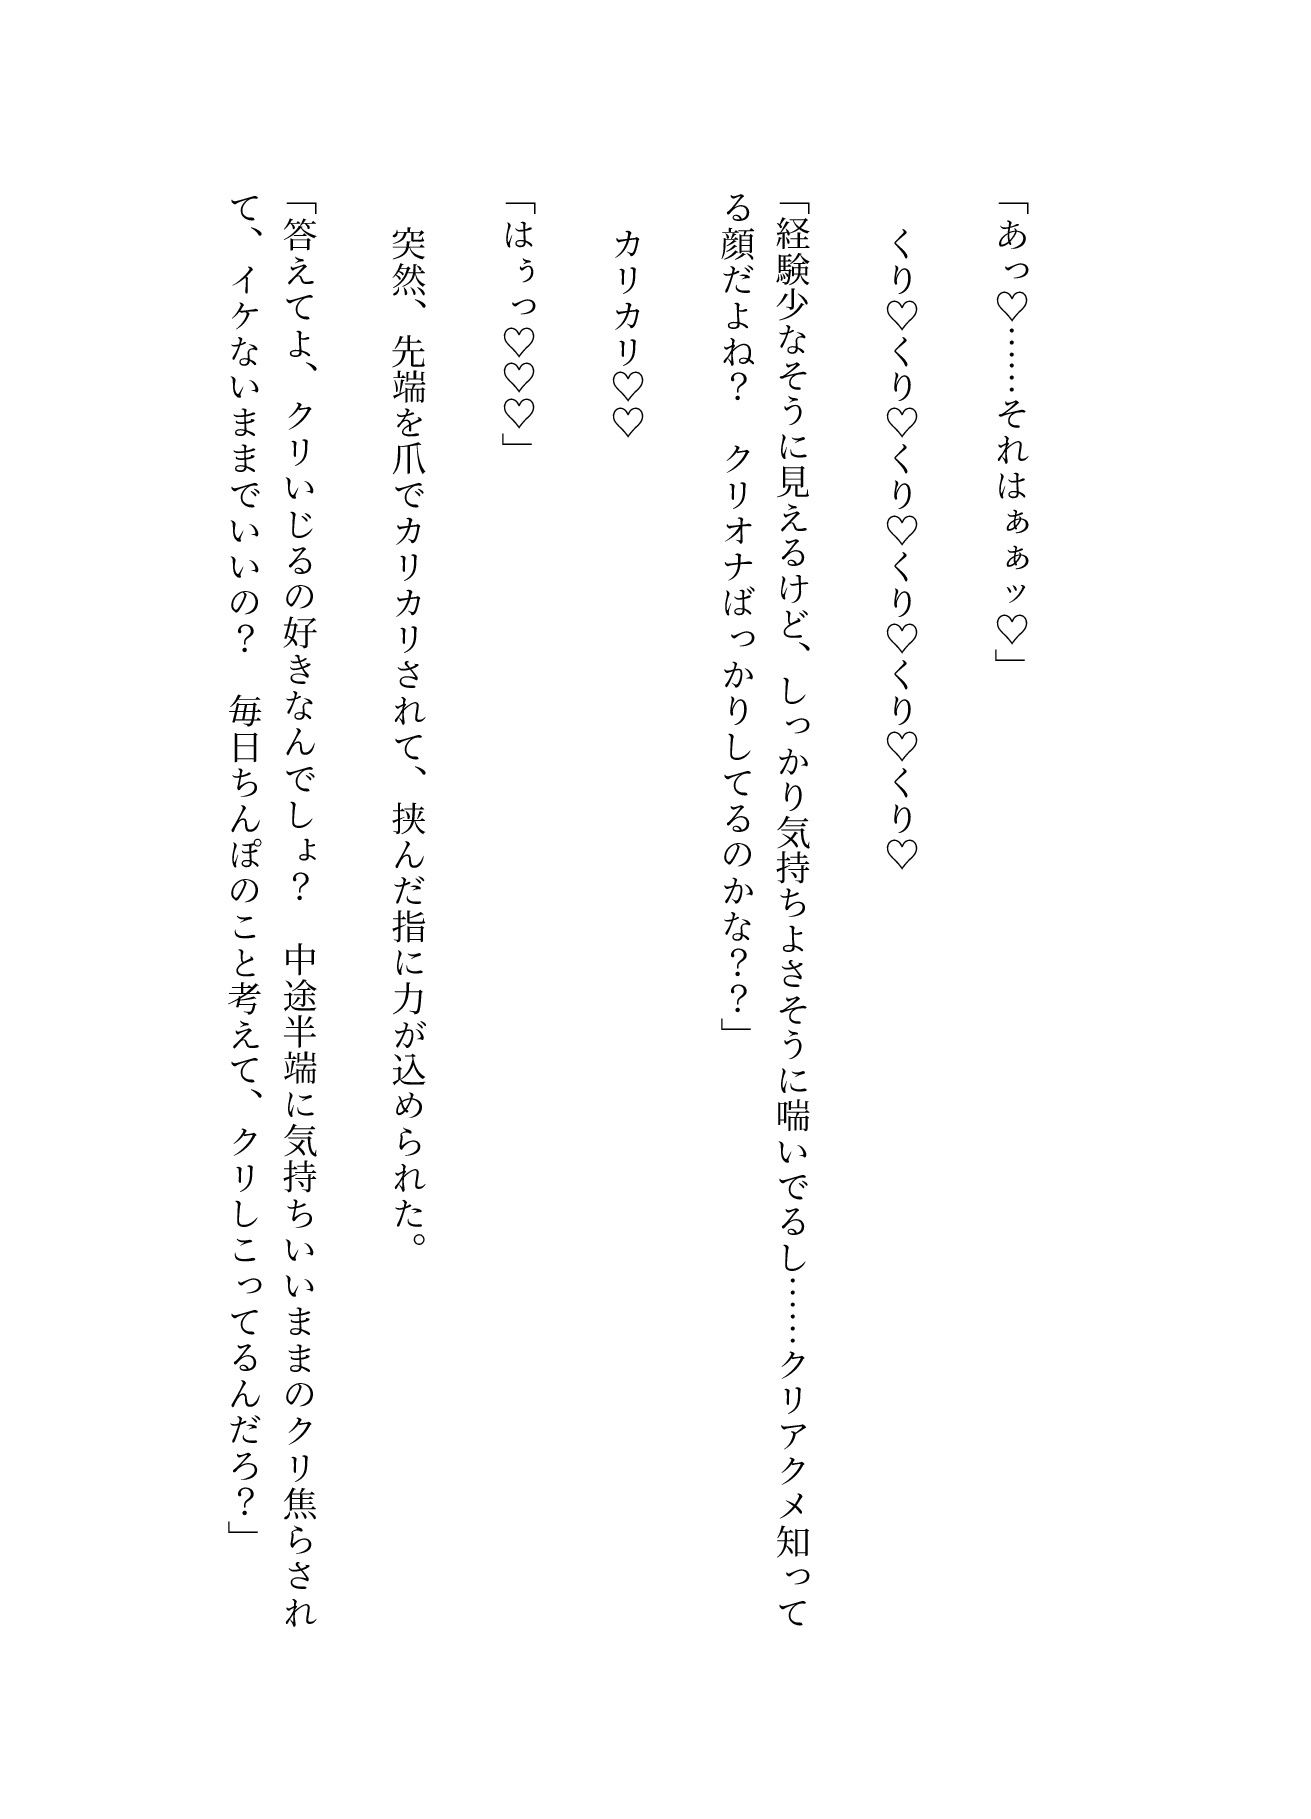 「あっ♡……それはぁぁッ♡」
くり♡くり♡くり♡くり♡くり♡くり♡
「経験少なそうに見えるけど、しっかり気持ちよさそうに喘いでるし……クリアクメ知って
る顔だよね?　クリオナばっかりしてるのかな??」
カリカリ♡♡
「はぅっ♡♡♡」
突然、先端を爪でカリカリされて、挟んだ指に力が込められた。
「答えてよ、クリいじるの好きなんでしょ?　中途半端に気持ちいいままのクリ焦らされ
て、イケないままでいいの?　毎日ちんぽのこと考えて、クリしこってるんだろ?」